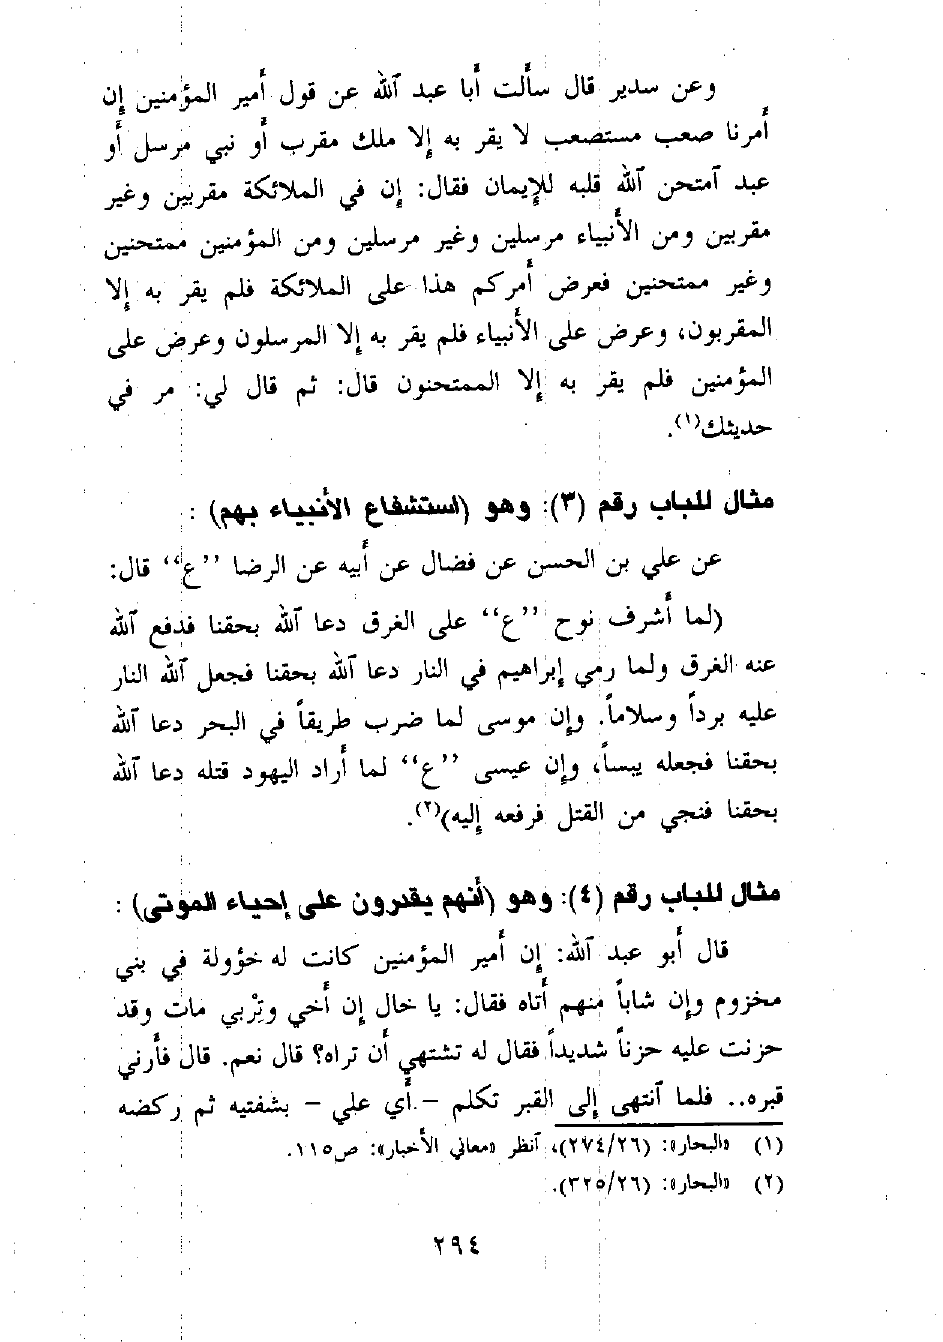 وعن سدير قال سألت أبا عبد الله عن قول أمير المؤمنين إن
أمرنا صعب مستصعب لا يقر به إلا ملك مقرب أو نبي مرسل أو
عبد آمتحن الله قلبه للإيمان فقال: إن في الملائكة مقربين وغير
مقربين ومن الأنبياء مرسلين وغير مرسلين ومن المؤمنين ممتحنين
وغير ممتحنين فعرض أمركم هذا على الملائكة فلم يقر به إلا
المقربون، وعرض على الأنبياء فلم يقر به إلا المرسلون وعرض على
المؤمنين فلم يقر به إلا الممتحنون قال: ثم قال لي: مر في
حديثك(١).
مثال للباب رقم (٣): وهو (استشفاع الأنبياء بهم) :
عن علي بن الحسن عن فضال عن أبيه عن الرضا ”ع“ قال:
(لما أشرف نوح ”ع“ على الغرق دعا الله بحقنا فدفع الله
عنه الغرق ولما رمي إبراهيم في النار دعا الله بحقنا فجعل الله النار
عليه برداً وسلاماً. وإن موسى لما ضرب طريقاً في البحر دعا الله
بحقنا فجعله يبساً، وإن عيسى ”ع“ لما أراد اليهود قتله دعا الله
بحقنا فنجي من القتل فرفعه إليه)(٢).
مثال للباب رقم (٤): وهو (أنهم يقدرون على إحياء الموتى) :
قال أبو عبد الله: إن أمير المؤمنين كانت له خؤولة في بني
مخزوم وإن شاباً منهم أتاه فقال: يا خال إن أخي وتِرْبي مات وقد
حزنت عليه حزناً شديداً فقال له تشتهي أن تراه؟ قال نعم. قال فأرني
قبره.. فلما آنتهى إلى القبر تكلم – أي علي – بشفتيه ثم ركضه
(١) «البحار»: (٢٧٤/٢٦)، آنظر «معاني الأخبار»: ص١١٥.
(٢) «البحار»: (٣٢٥/٢٦).
٢٩٤